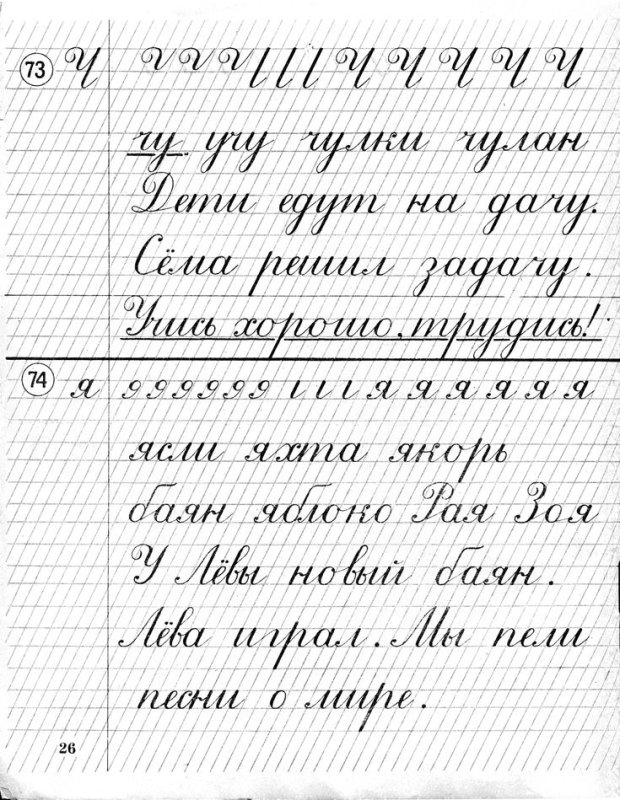 73 У У У У У У
чу учу чулки чулан
Дети едут на дачу.
Сёма решил задачу.
Учись хорошо, трудись!
74 я я я я я я я
ясли яхта якорь
баян яблоко Рая Зоя
У Лёвы новый баян.
Лёва играл. Мы пели
песни о мире.
26